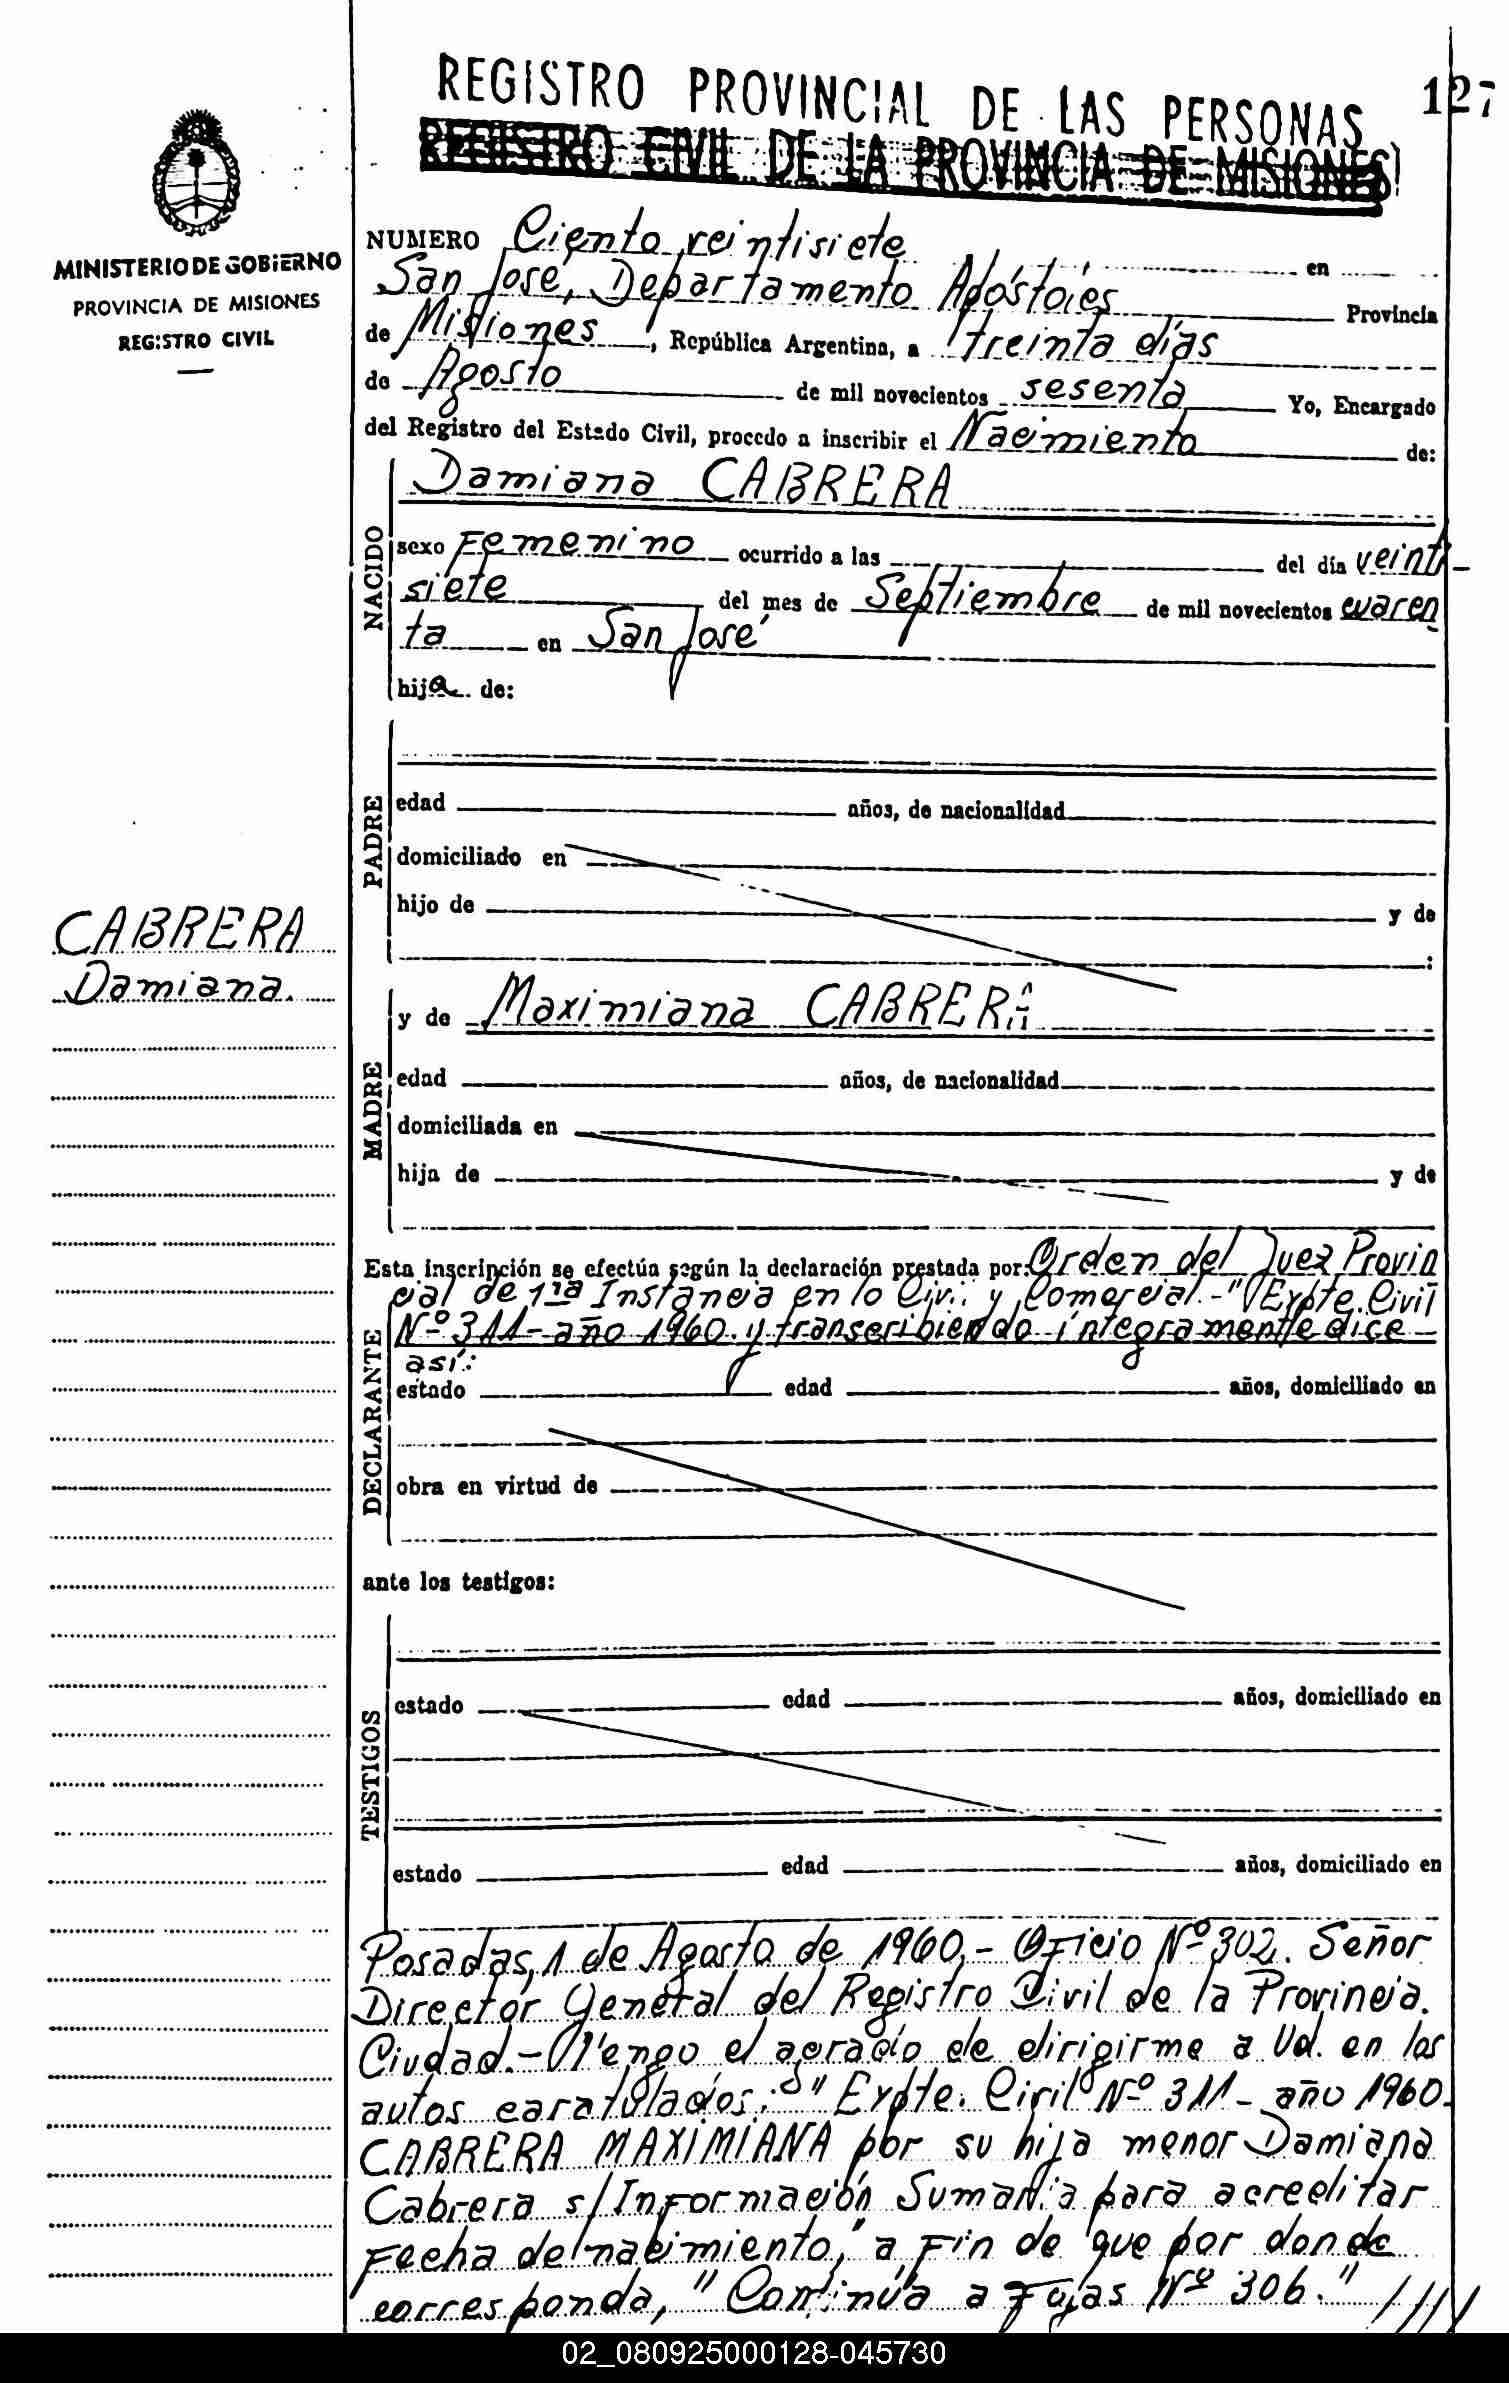 REGISTRO PROVINCIAL DE LAS PERSONAS
127
REGISTRO CIVIL DE LA PROVINCIA DE MISIONES
MINISTERIO DE GOBIERNO
PROVINCIA DE MISIONES
REGISTRO CIVIL
NUMERO Ciento veintisiete en
San José, Departamento Apóstoles Provincia
de Misiones, República Argentina, a treinta días
de Agosto de mil novecientos sesenta Yo, Encargado
del Registro del Estado Civil, procedo a inscribir el Nacimiento de:
NACIDO
Damiana CABRERA
sexo Femenino ocurrido a las del día veinti-
siete del mes de Septiembre de mil novecientos cuaren
ta en San José
hija de:
PADRE
edad años, de nacionalidad
domiciliado en
hijo de y de
:
CABRERA
Damiana.
MADRE
y de Maximiana CABRERA
edad años, de nacionalidad
domiciliada en
hija de y de
Esta inscripción se efectúa según la declaración prestada por: Orden del Juez Provin
cial de 1ra Instancia en lo Civil y Comercial.-"Expte. Civil
Nº 311-año 1960. y transcribiendo íntegramente dice
así:
DECLARANTE
estado edad años, domiciliado en
obra en virtud de
ante los testigos:
TESTIGOS
estado edad años, domiciliado en
estado edad años, domiciliado en
Posadas, 1 de Agosto de 1960.- Oficio Nº 302. Señor
Director General del Registro Civil de la Provincia.
Ciudad.- Tengo el agrado de dirigirme a Ud. en los
autos caratulados: "Expte. Civil Nº 311- año 1960.
CABRERA MAXIMIANA por su hija menor Damiana
Cabrera s/Información Sumaria para acreditar
Fecha de nacimiento," a Fin de que por donde
corresponda, "Continúa a Fojas Nº 306." ////
02_080925000128-045730